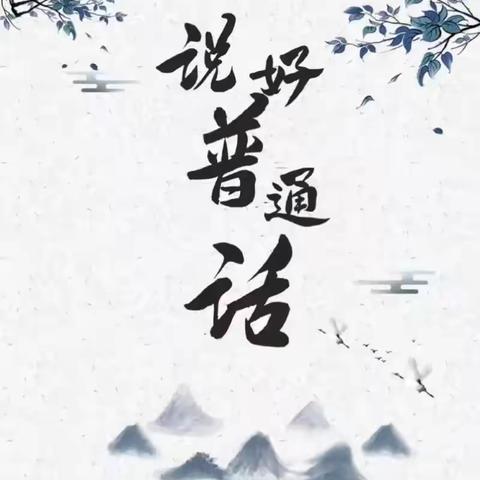 说好
普通
话